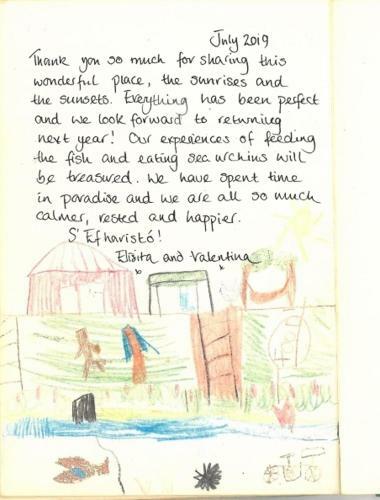 July 2019
Thank you so much for sharing this
wonderful place, the sunrises and
the sunsets. Everything has been perfect
and we look forward to returning
next year! Our experiences of feeding
the fish and eating sea urchins will
be treasured. We have spent time
in paradise and we are all so much
calmer, rested and happier.
S' Efharistó!
Elpita and Valentina